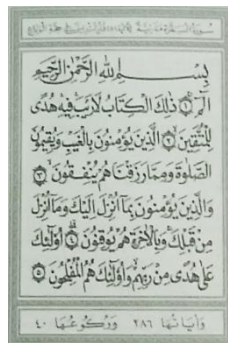 سورة البقرة مدنية
بِسْمِ اللَّهِ الرَّحْمَٰنِ الرَّحِيمِ
الٓمٓ ۝١ ذَٰلِكَ الْكِتَابُ لَا رَيْبَ فِيهِ هُدًى
لِلْمُتَّقِينَ ۝٢ الَّذِينَ يُؤْمِنُونَ بِالْغَيْبِ وَيُقِيمُونَ
الصَّلٰوةَ وَمِمَّا رَزَقْنَاهُمْ يُنْفِقُونَ ۝٣
وَالَّذِينَ يُؤْمِنُونَ بِمَا أُنْزِلَ إِلَيْكَ وَمَا أُنْزِلَ
مِنْ قَبْلِكَ وَبِالْآخِرَةِ هُمْ يُوقِنُونَ ۝٤ أُولَٰئِكَ
عَلَىٰ هُدًى مِنْ رَبِّهِمْ وَأُولَٰئِكَ هُمُ الْمُفْلِحُونَ ۝٥
وآياتها ٢٨٦ وركوعها ٤٠